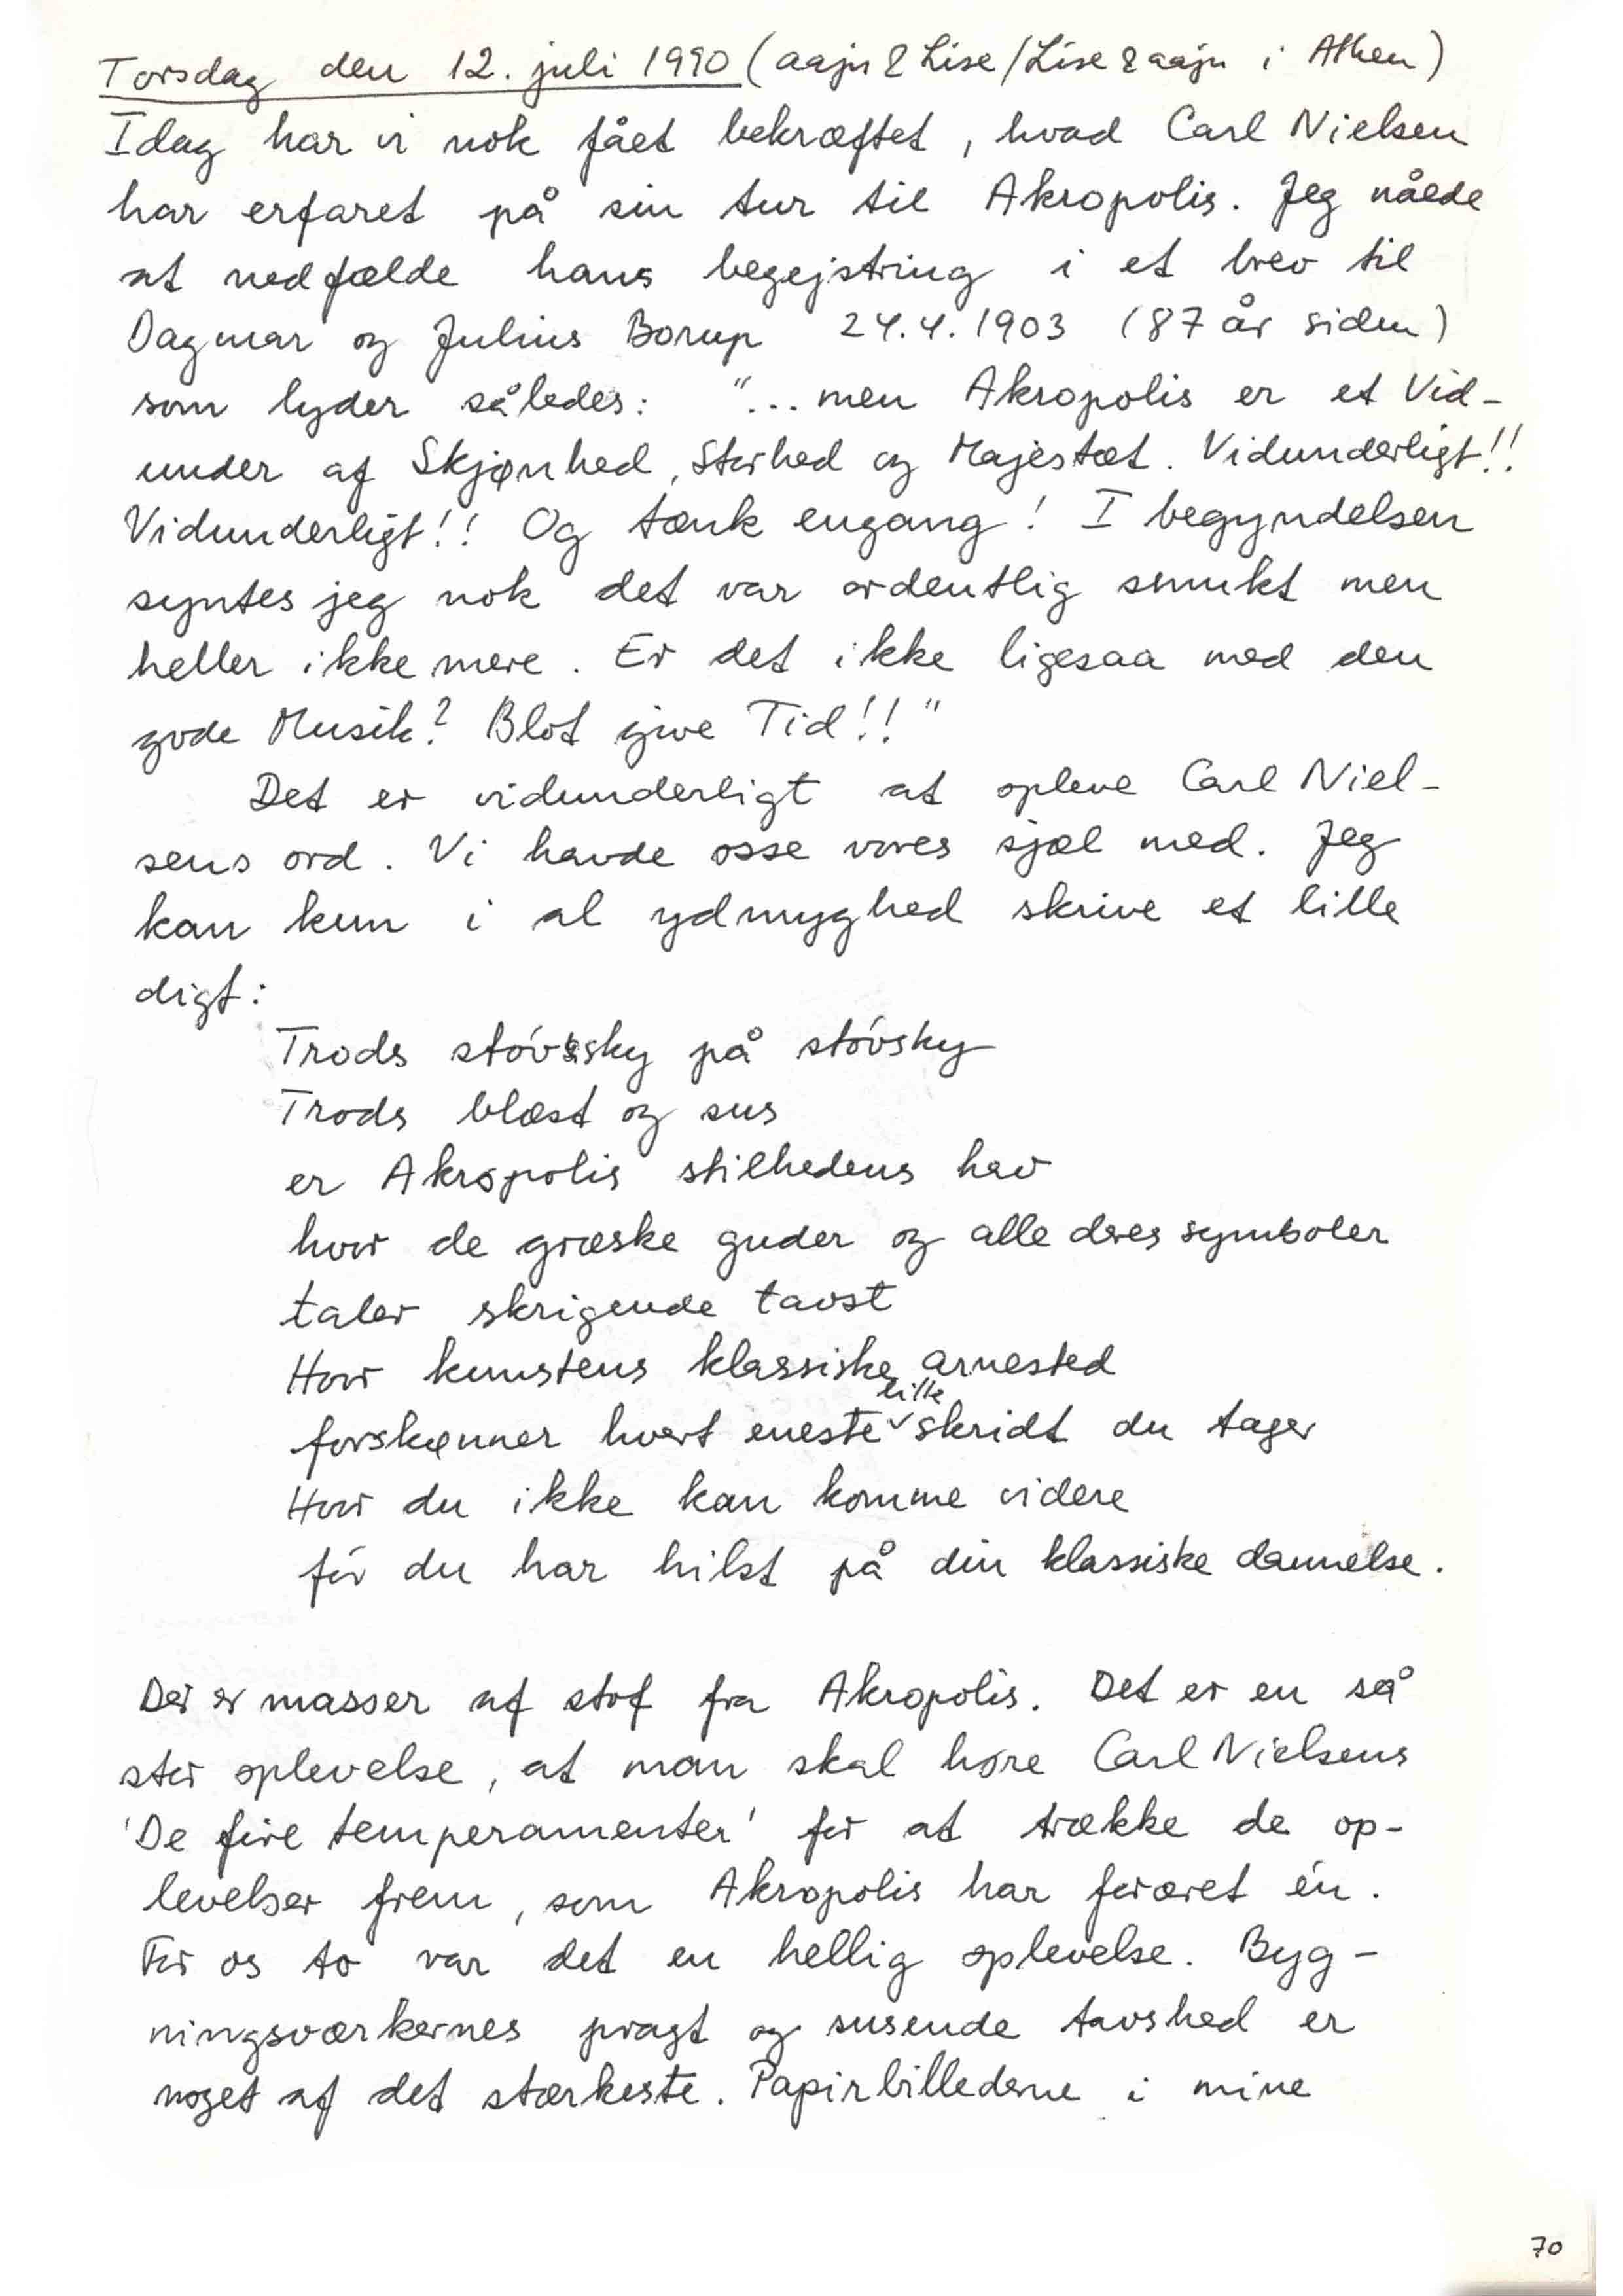 Torsdag den 12. juli 1990 (aaju & Lise/Lise & aaju i Athen)
Idag har vi nok fået bekræftet, hvad Carl Nielsen
har erfaret på sin tur til Akropolis. Jeg nåede
at nedfælde hans begejstring i et brev til
Dagmar og Julius Borup 24.4.1903 (87 år siden)
som lyder således: "... men Akropolis er et Vid-
under af Skjønhed, Storhed og Majestæt. Vidunderligt!!
Vidunderligt!! Og tænk engang! I begyndelsen
syntes jeg nok det var ordentlig smukt men
heller ikke mere. Er det ikke ligesaa med den
gode Musik? Blot give Tid!!"
Det er vidunderligt at opleve Carl Niel-
sens ord. Vi havde osse vores sjæl med. Jeg
kan kun i al ydmyghed skrive et lille
digt:
Trods støvsky på støvsky
Trods blæst og sus
er Akropolis stilhedens hav
hvor de græske guder og alle deres symboler
taler skrigende tavst
Hvor kunstens klassiske arnested
forskønner hvert eneste lille skridt du tager
Hvor du ikke kan komme videre
før du har hilst på din klassiske dannelse.
Der er masser af stof fra Akropolis. Det er en så
stor oplevelse, at man skal høre Carl Nielsens
'De fire temperamenter' for at trække de op-
levelser frem, som Akropolis har foræret én.
For os to var det en hellig oplevelse. Byg-
ningsværkernes pragt og susende tavshed er
noget af det stærkeste. Papirbillederne i mine
70